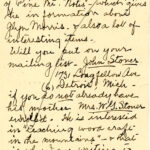 of Pine Mt. Notes, which gives
the information about
John Morris. & also a lot of
interesting items.
Will you put on your
mailing list - John Stoner
1731 Longfellow Ave
(6) Detroit, Mich -
if you do not already have
his mother Mrs. Stoner
He is interested
in teaching wood craft
in the mountains